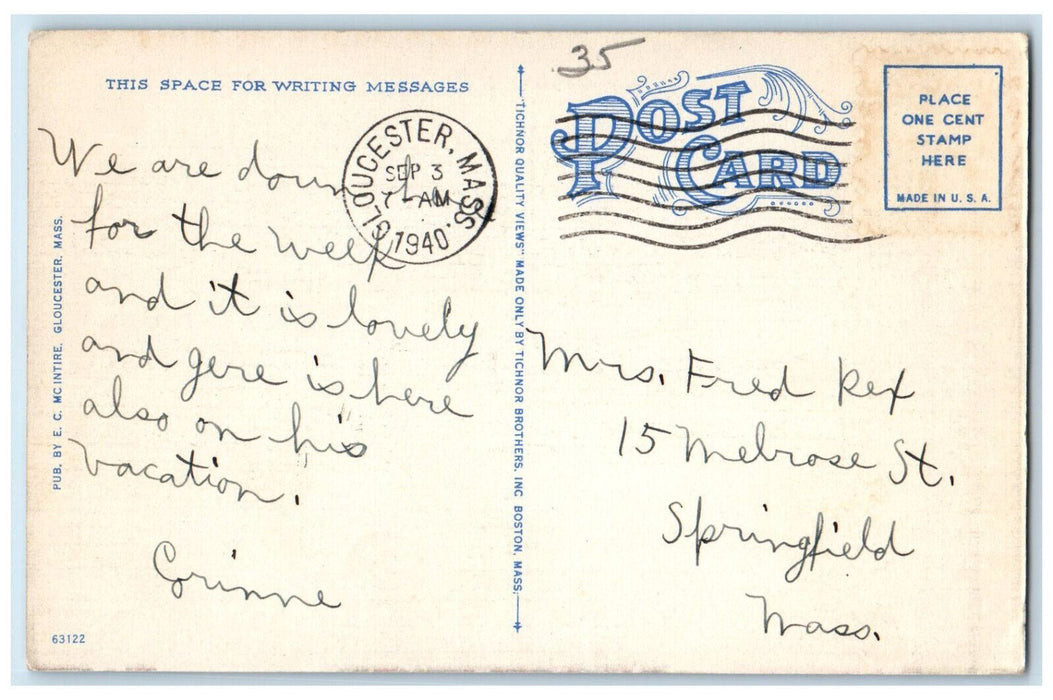 THIS SPACE FOR WRITING MESSAGES
We are down here
for the week
and it is lovely
and gere is here
also on his
vacation.
Corinne
GLOUCESTER, MASS.
SEP 3
7-AM
1940
PUB. BY E. C. MCINTIRE, GLOUCESTER, MASS.
63122
"TICHNOR QUALITY VIEWS" MADE ONLY BY TICHNOR BROTHERS, INC BOSTON, MASS.
35
POST
CARD
PLACE
ONE CENT
STAMP
HERE
MADE IN U. S. A.
Mrs. Fred Rex
15 Melrose St.
Springfield
Mass.